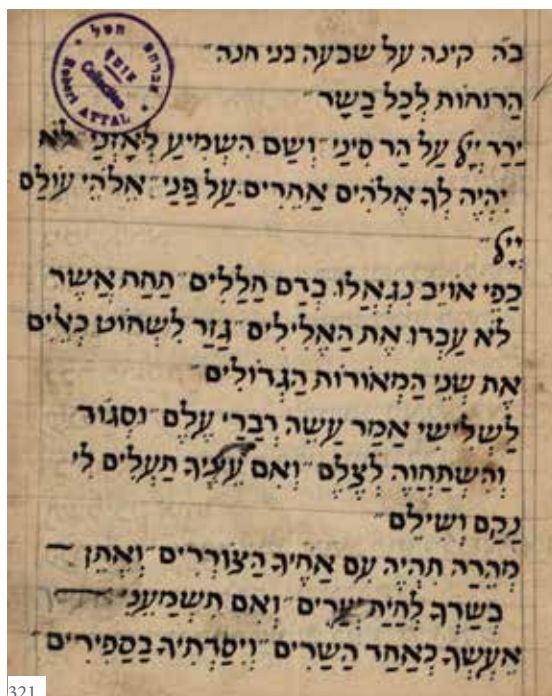 בה קינה על שבעה בני חנה
הרוחות לְכָל בָשָר
יָרַד יְיָ עַל הַר סִינַי וְשַם הִשְמִיעַ לְאָזְנַי לֹא
יִהְיֶה לְךָ אֱלֹהִים אֲחֵרִים עַל פָּנַי אֱלֹהֵי עוֹלָם
יְיָ
כַפֵי אוֹיֵב נִגְאֲלוּ בְדַם חַלָלִים תַחַת אֲשֶר
לֹא עָבְדוּ אֶת הָאֱלִילִים גָזַר לִשְחוֹט כְאֵילִים
אֶת שְנֵי הַמְאוֹרוֹת הַגְדוֹלִים
לַשְלִישִי אָמַר עֲשֵה דְבָרַי עֶלֶם וּסְגוֹד
וְהִשְתַחֲוֶה לְצֶלֶם וְאִם עֵינֶיךָ תַעְלִים לִי
נָקָם וְשִילֵם
מְהֵרָה תִהְיֶה עִם אַחֶיךָ הַצוֹרְרִים וְאֶתֵן
בְשָרְךָ לְחַיַת יְעָרִים וְאִם תִשְמָעֵנִי
אֶעֶשְךָ כְאַחַד הַשָרִים וְיִסַדְתִיךָ בַסַפִירִים
Robert ATTAL
Collection
אוסף
אברהם
321